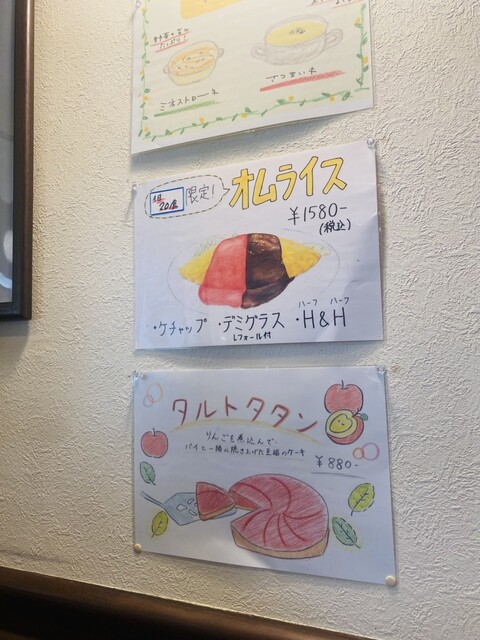 たっぷり
ミネストローネ
さつまいも
1日
20食
限定!
オムライス
¥1580-
(税込)
ハーフ ハーフ
・ケチャップ ・デミグラス ・H&H
レフォール付
タルトタタン
りんごを煮込んで、
パイと一緒に焼き上げた至福のケーキ
¥880-